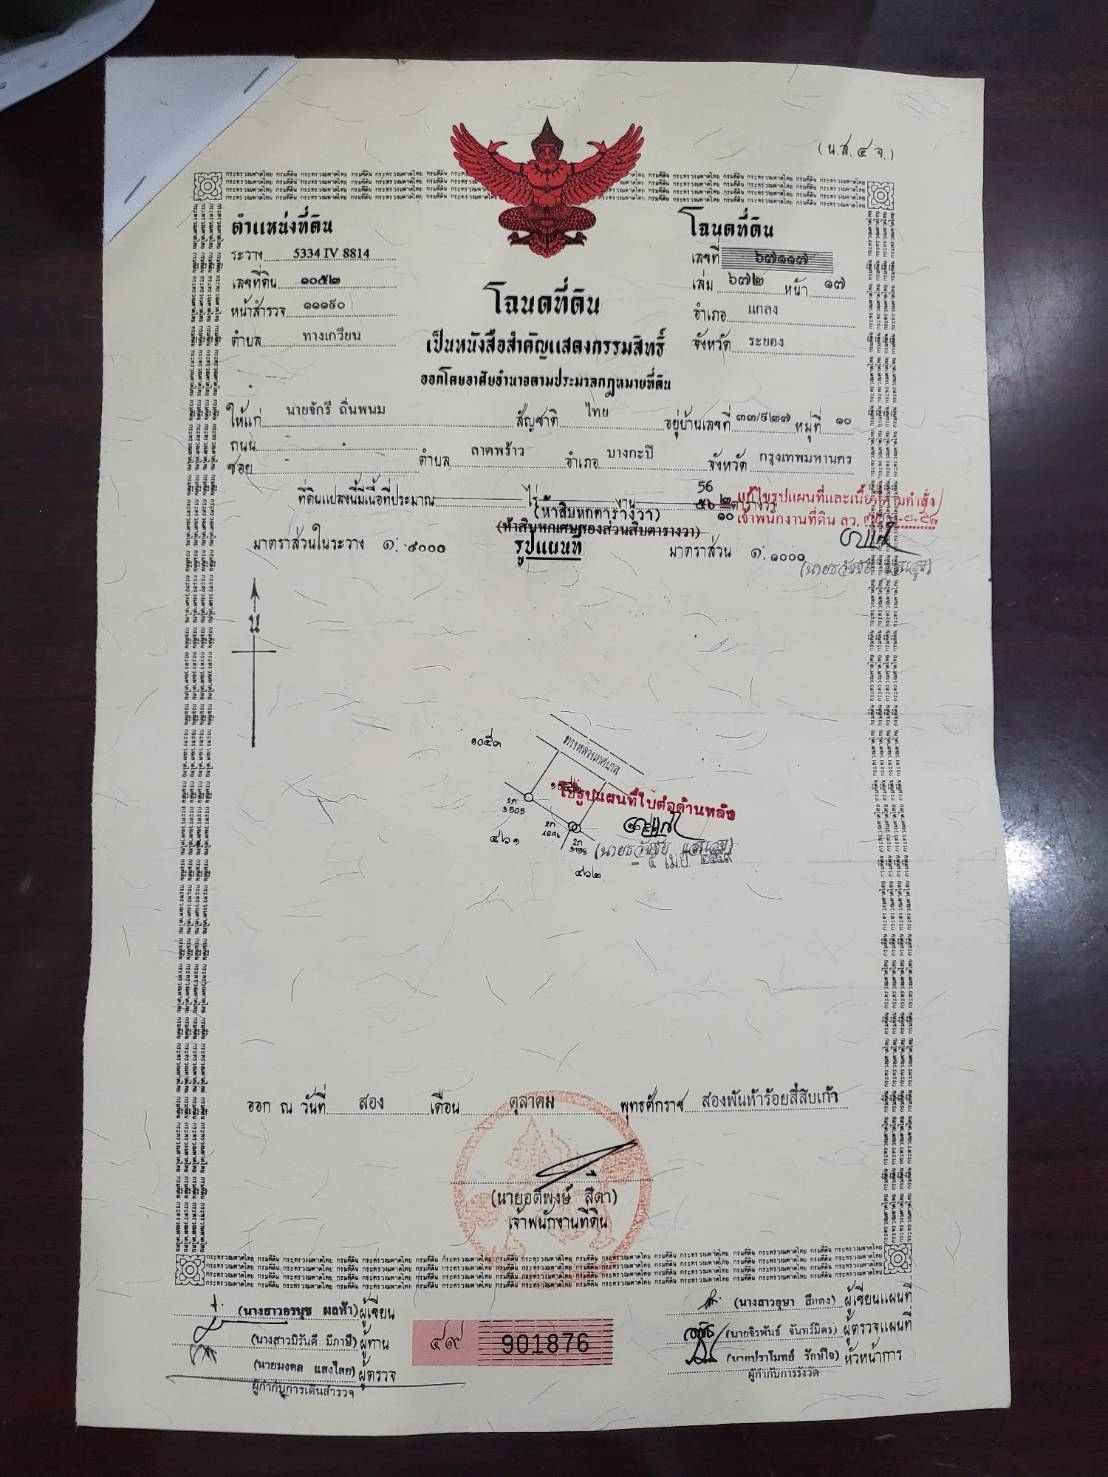 (น.ส. ๔ จ.)
ตำแหน่งที่ดิน
ระวาง 5334 IV 8814
เลขที่ดิน ๑๐๕๒
หน้าสำรวจ ๑๑๑๙๐
ตำบล ทางเกวียน
โฉนดที่ดิน
เลขที่ ๖๗๑๑๗
เล่ม ๖๗๒ หน้า ๑๗
อำเภอ แกลง
จังหวัด ระยอง
โฉนดที่ดิน
เป็นหนังสือสำคัญแสดงกรรมสิทธิ์
ออกโดยอาศัยอำนาจตามประมวลกฎหมายที่ดิน
ให้แก่ นายจักรี ถิ่นพนม สัญชาติ ไทย อยู่บ้านเลขที่ ๓๓/๙๒๗ หมู่ที่ ๑๐
ถนน
ซอย ตำบล ลาดพร้าว อำเภอ บางกะปิ จังหวัด กรุงเทพมหานคร
56
ที่ดินแปลงนี้มีเนื้อที่ประมาณ ไร่ งาน ๕๖ ๒ ตารางวา
๑๐
แก้ไขรูปแผนที่และเนื้อที่ตามคำสั่ง
เจ้าพนักงานที่ดิน ลว.
(ห้าสิบหกตารางวา)
(ห้าสิบหกเศษสองส่วนสิบตารางวา)
มาตราส่วนในระวาง ๑: ๔๐๐๐ รูปแผนที่ มาตราส่วน ๑: ๑๐๐๐
น
๑๐๕๓
ทางสาธารณประโยชน์
ใช้รูปแผนที่ใบต่อด้านหลัง
๔๖๑
๔๖๒
ออก ณ วันที่ สอง เดือน ตุลาคม พุทธศักราช สองพันห้าร้อยสี่สิบเก้า
(นายอดิพงษ์ สีดา)
เจ้าพนักงานที่ดิน
(นางสาวอรนุช ผลฟ้า) ผู้เขียน
(นางสาวมิรันตี มีภาษี) ผู้ทาน
(นายมงคล แสงไสย) ผู้ตรวจ
ผู้กำกับการเดินสำรวจ
๔๙ 901876
(นางสาวอุษา สีแดง) ผู้เขียนแผนที่
(นายจิรพันธ์ จันทร์มิตร) ผู้ตรวจแผนที่
(นายปราโมทย์ รักษ์ใจ) หัวหน้าการ
ผู้กำกับการรังวัด